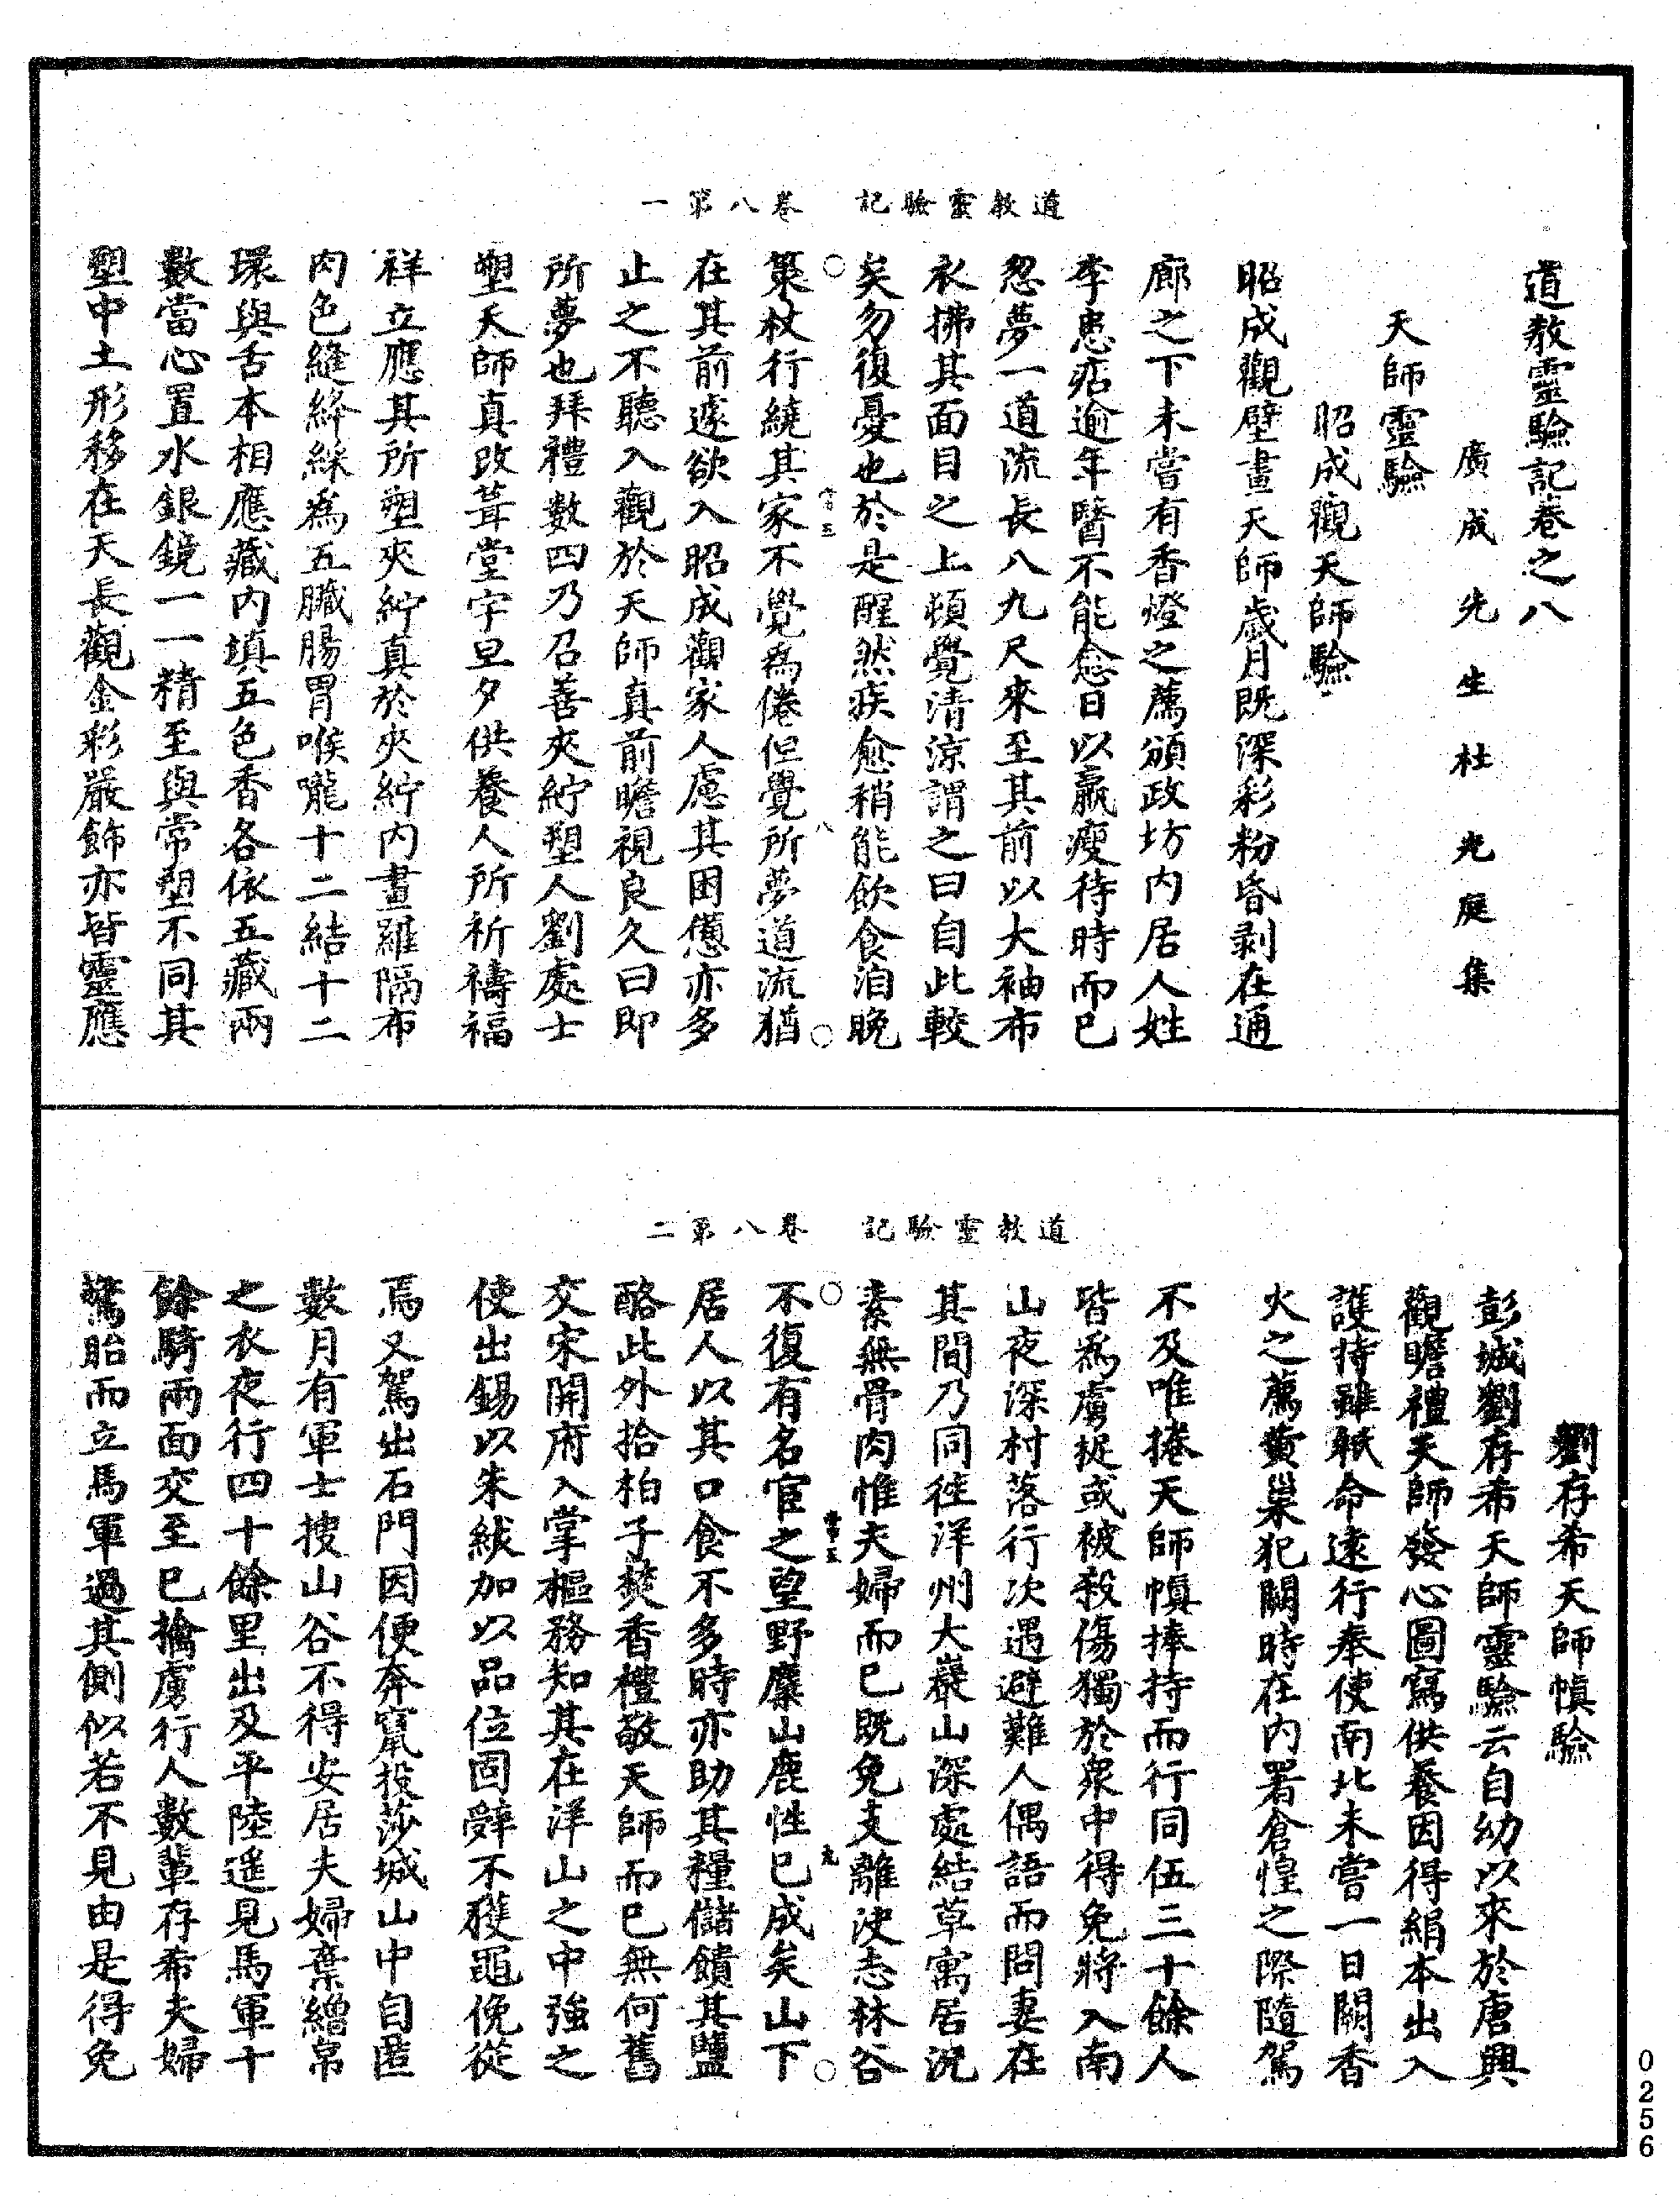 道教靈驗記　卷八第一
道教靈驗記卷之八
廣成先生杜光庭集
天師靈驗
昭成觀天師驗
昭成觀壁畫天師歲月既深彩粉昏剥在通
廊之下未嘗有香燈之薦頒政坊内居人姓
李患痁逾年醫不能愈日以羸瘦待時而已
忽夢一道流長八九尺來至其前以大袖布
衣拂其面目之上頓覺清涼謂之曰自此較
矣勿復憂也於是醒然疾愈稍能飲食洎晚
策杖行繞其家不覺為倦但覺所夢道流猶
在其前遽欲入昭成觀家人慮其困憊亦多
止之不聽入觀於天師真前瞻視良久曰即
所夢也拜禮數四乃召善夾紵塑人劉處士
塑天師真改葺堂宇旦夕供養人所祈禱福
祥立應其所塑夾紵真於夾紵内畫羅隔布
肉色縫絳綵為五臟腸胃喉嚨十二結十二
環與舌本相應藏内填五色香各依五藏兩
數當心置水銀鏡一一精至與常塑不同其
塑中土形移在天長觀金彩嚴飾亦皆靈應
道教靈驗記　卷八第二
劉存希天師幀驗
彭城劉存希天師靈驗云自幼以來於唐興
觀瞻禮天師發心圖寫供養因得絹本出入
護持雖軹命遠行奉使南北未嘗一日闕香
火之薦黄巢犯闕時在内署倉惶之際隨駕
不及唯捲天師幀捧持而行同伍三十餘人
皆為虜捉或被殺傷獨於衆中得免將入南
山夜深村落行次遇避難人偶語而問妻在
其間乃同往洋州大巖山深處結草寓居況
素無骨肉惟夫婦而已既免支離決志林谷
不復有名宦之望野麋山鹿性已成矣山下
居人以其口食不多時亦助其糧儲饋其鹽
酪此外拾柏子焚香禮敬天師而已無何舊
交宋開府入掌樞務知其在洋山之中強之
使出錫以朱紱加以品位固辭不獲黽俛從
焉又駕出石門因便奔竄投莎城山中自匿
數月有軍士搜山谷不得安居夫婦棄繒帛
之衣夜行四十餘里出及平陸遥見馬軍十
餘騎兩面交至已擒虜行人數輩存希夫婦
驚胎而立馬軍過其側似若不見由是得免
0256